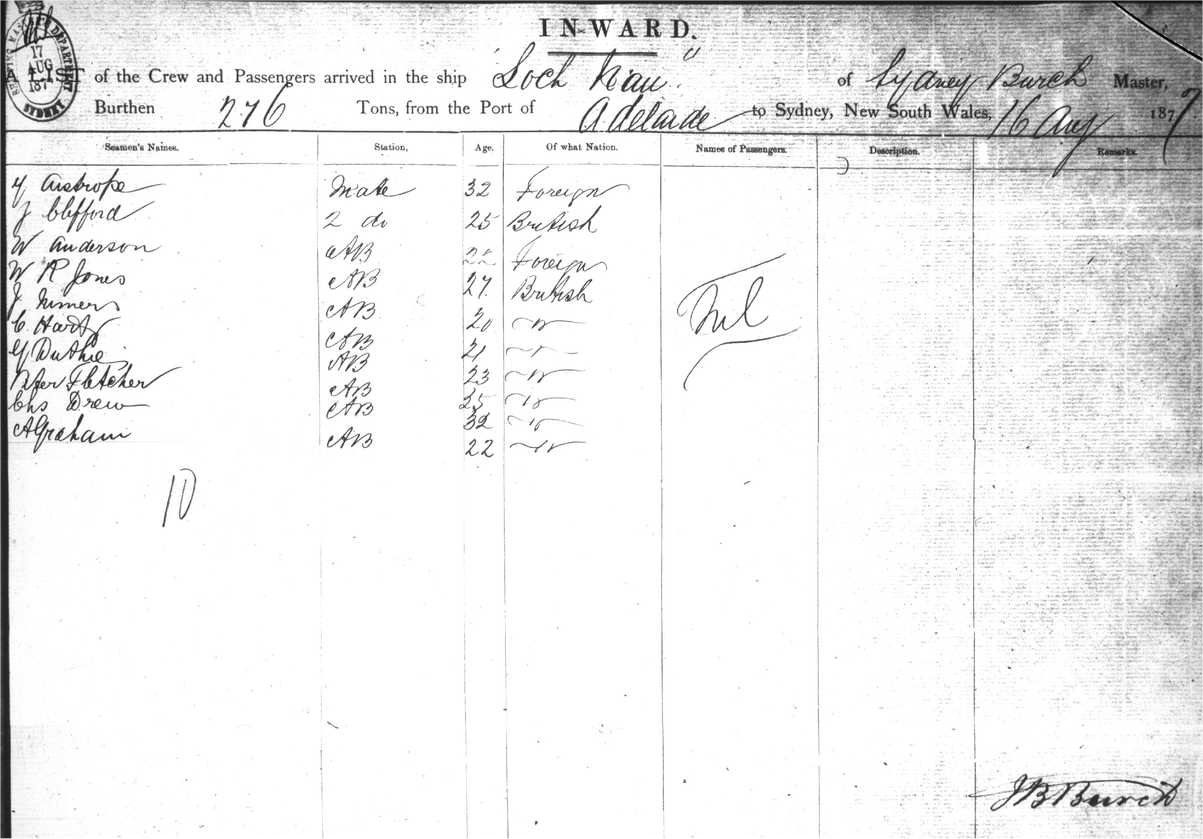 IN-WARD.
17
AUG
187
SYDNEY
A LIST of the Crew and Passengers arrived in the ship "Loch of Sydney Burch Master,
Burthen 276 Tons, from the Port of Adelaide to Sydney, New South Wales, 16 Aug 1877
Seamen's Names. Station, Age. Of what Nation. Names of Passengers. Description. Remarks.
Mate 32 Foreign
J Clifford 2 do 25 British
W Anderson AB 22 Foreign
W R Jones AB 27 British
J AB 20 "
C Hart AB 21 "
G Duthie AB 23 "
Peter Fletcher AB 25 "
Chs Drew AB 32 "
A Graham AB 22 "
Nil
10
J B Burch